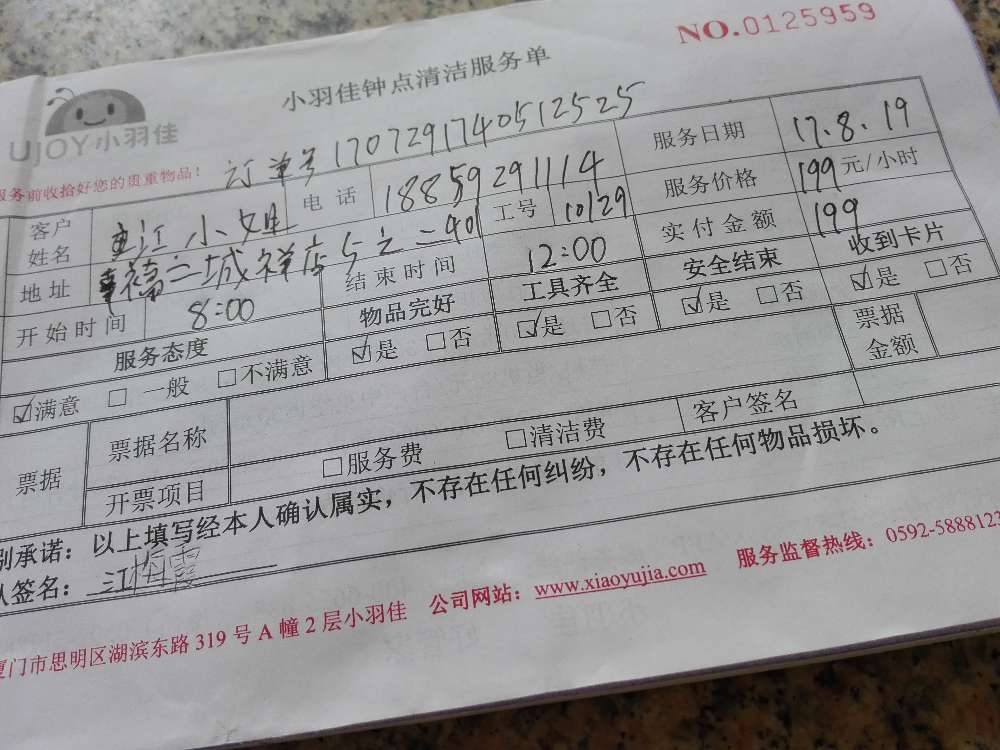 NO.0125959
UJOY小羽佳
小羽佳钟点清洁服务单
服务前收拾好您的贵重物品!
订单号 1707291740512525
客户姓名 江小姐 电话 18859291114 服务日期 17.8.19
地址 福三城祥店5之二401 工号 10129 服务价格 199元/小时
开始时间 8:00 结束时间 12:00 实付金额 199
服务态度 物品完好 工具齐全 安全结束 收到卡片
☑满意 □一般 □不满意 ☑是 □否 ☑是 □否 ☑是 □否 ☑是 □否
票据 票据名称 票据金额
开票项目 □服务费 □清洁费 客户签名
别承诺:以上填写经本人确认属实,不存在任何纠纷,不存在任何物品损坏。
人签名:江梅霞
厦门市思明区湖滨东路319号A幢2层小羽佳 公司网站:www.xiaoyujia.com 服务监督热线:0592-5888123